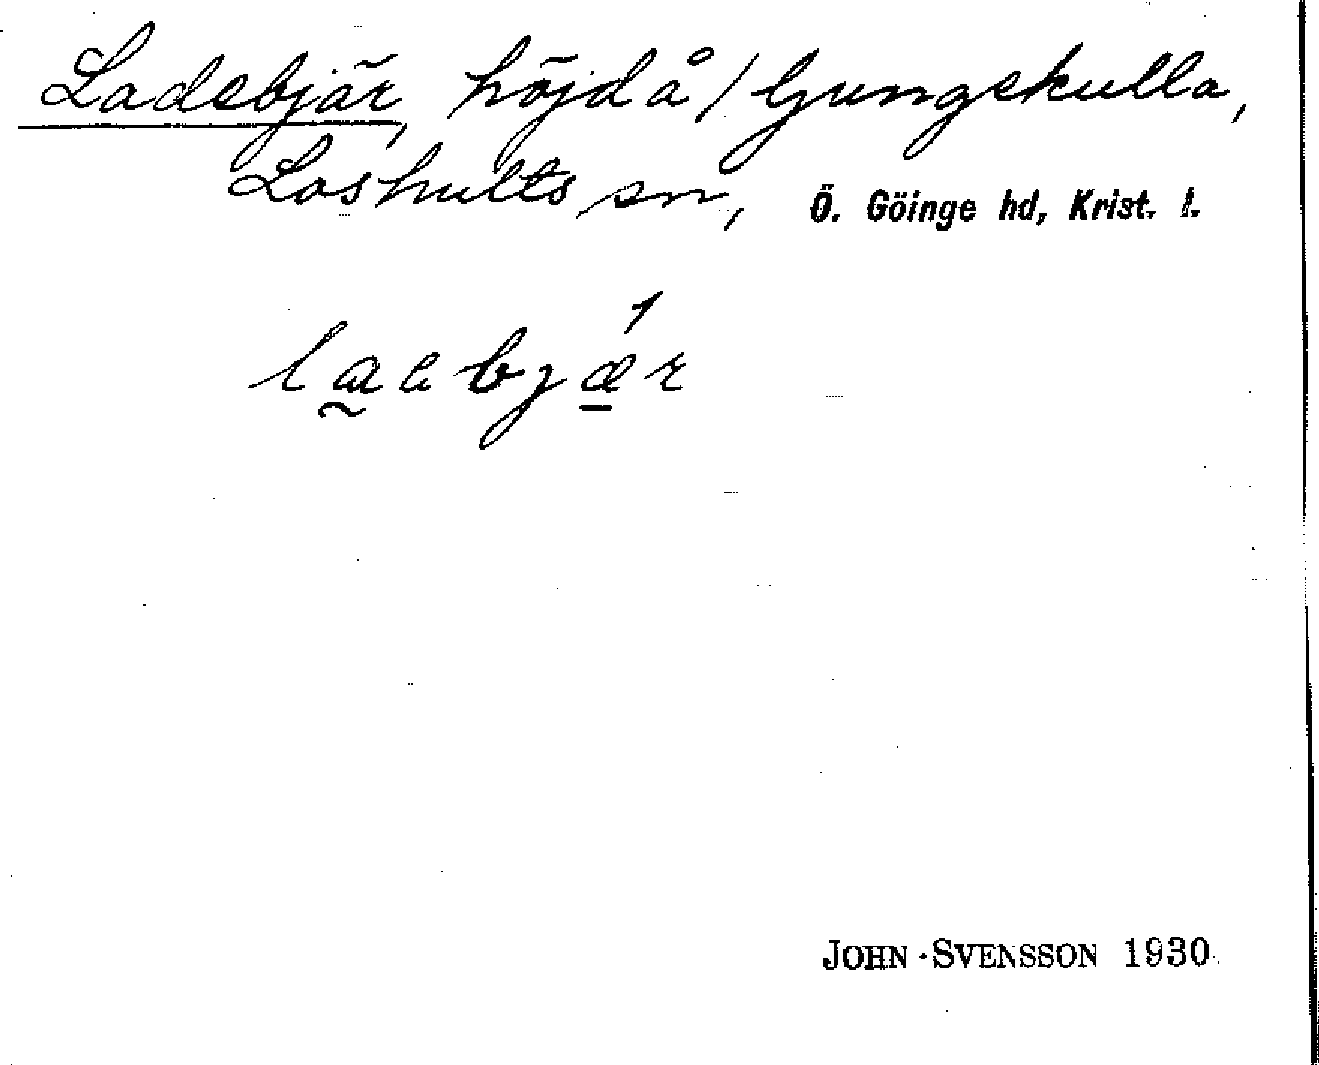 Ladebjär, höjd å / Ljungskulla,
Loshults sn, Ö. Göinge hd, Krist. l.
laebjæ̱r
JOHN SVENSSON 1930